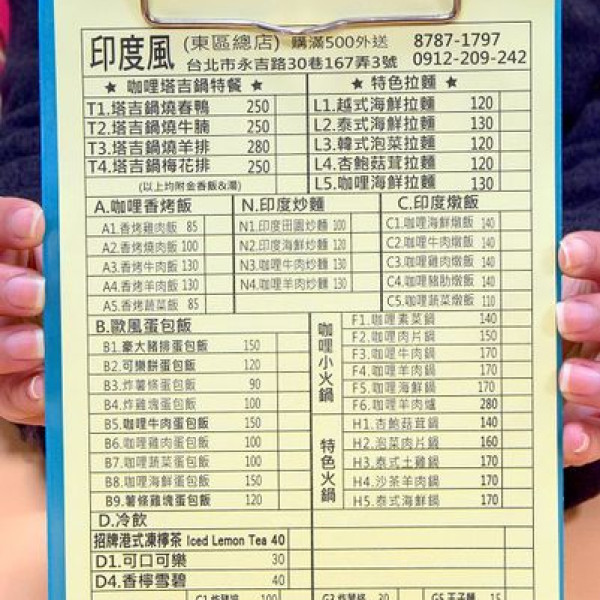 印度風 (東區總店) 購滿500外送 8787-1797
台北市永吉路30巷167弄3號 0912-209-242
★ 咖哩塔吉鍋特餐 ★
T1.塔吉鍋燒春鴨 250
T2.塔吉鍋燒牛腩 250
T3.塔吉鍋燒羊排 280
T4.塔吉鍋梅花排 250
(以上均附金香飯&湯)
★ 特色拉麵 ★
L1.越式海鮮拉麵 120
L2.泰式海鮮拉麵 130
L3.韓式泡菜拉麵 120
L4.杏鮑菇茸拉麵 120
L5.咖哩海鮮拉麵 130
A.咖哩香烤飯
A1.香烤雞肉飯 85
A2.香烤燒肉飯 100
A3.香烤牛肉飯 130
A4.香烤羊肉飯 130
A5.香烤蔬菜飯 85
N.印度炒麵
N1.印度田園炒麵 100
N2.印度海鮮炒麵 120
N3.咖哩牛肉炒麵 130
N4.咖哩羊肉炒麵 130
C.印度燉飯
C1.咖哩海鮮燉飯 140
C2.咖哩牛肉燉飯 140
C3.咖哩雞肉燉飯 140
C4.咖哩豬肋燉飯 140
C5.咖哩蔬菜燉飯 110
B.歐風蛋包飯
B1.豪大豬排蛋包飯 150
B2.可樂餅蛋包飯 120
B3.炸薯條蛋包飯 90
B4.炸雞塊蛋包飯 100
B5.咖哩牛肉蛋包飯 150
B6.咖哩雞肉蛋包飯 100
B7.咖哩蔬菜蛋包飯 100
B8.咖哩海鮮蛋包飯 150
B9.薯條雞塊蛋包飯 120
咖哩小火鍋
F1.咖哩素菜鍋 140
F2.咖哩肉片鍋 150
F3.咖哩牛肉鍋 170
F4.咖哩羊肉鍋 170
F5.咖哩海鮮鍋 170
F6.咖哩羊肉爐 280
特色火鍋
H1.杏鮑菇茸鍋 140
H2.泡菜肉片鍋 160
H3.泰式土雞鍋 170
H4.沙茶羊肉鍋 170
H5.泰式海鮮鍋 170
D.冷飲
招牌港式凍檸茶 Iced Lemon Tea 40
D1.可口可樂 30
D4.香檸雪碧 40